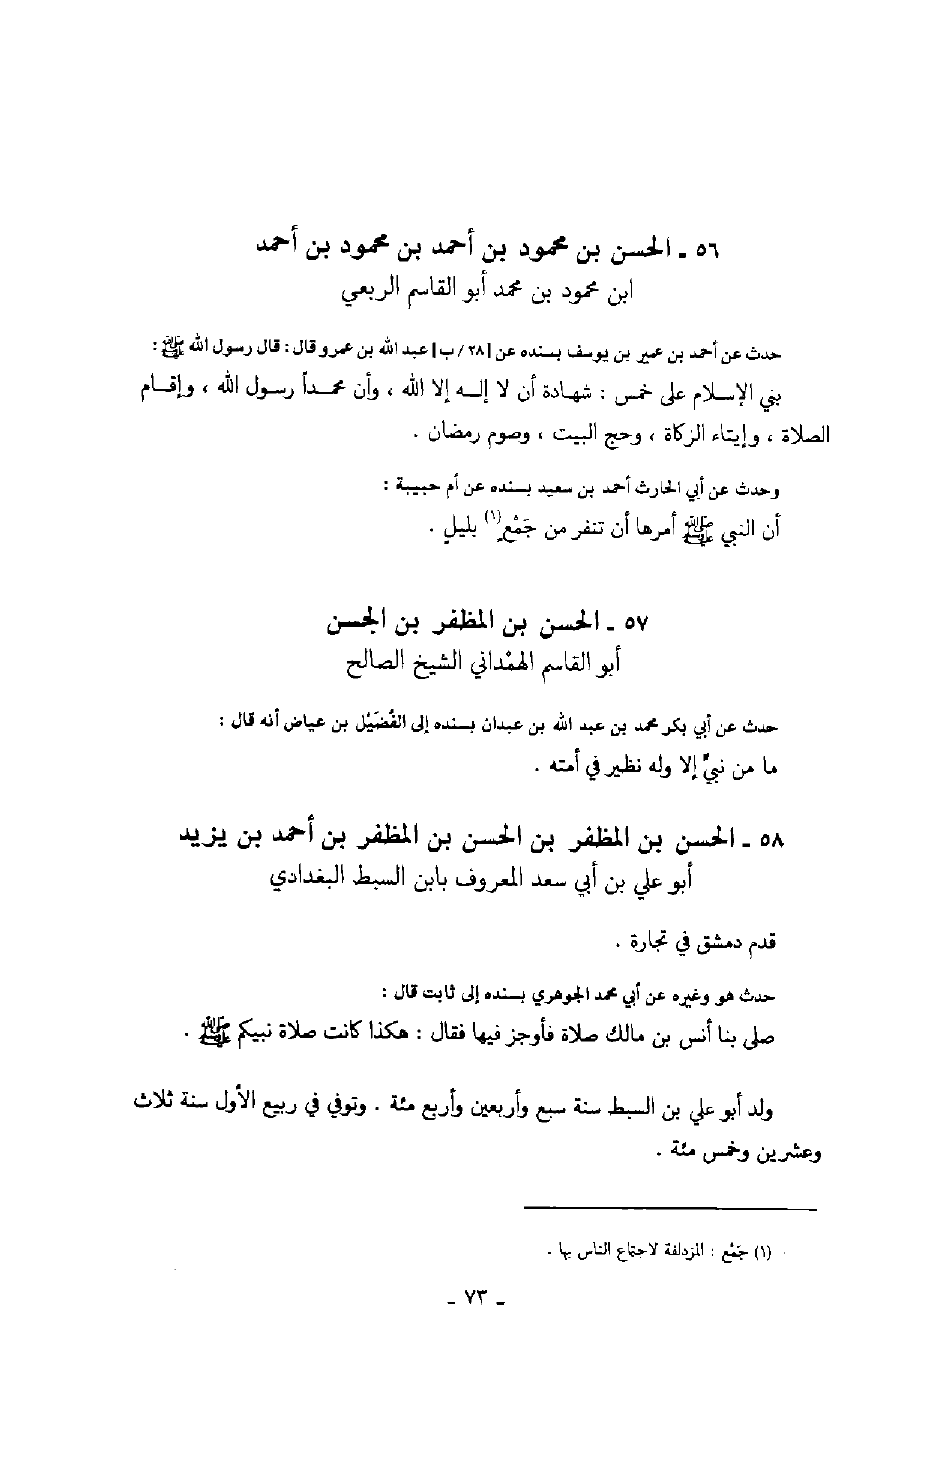 ٥٦ ـ الحسن بن محمود بن أحمد بن محمود بن أحمد
ابن محمود بن محمد أبو القاسم الربعي
حدث عن أحمد بن عمير بن يوسف بسنده عن [٢٨/ب] عبد الله بن عمرو قال : قال رسول الله ﷺ :
بني الإسلام على خمس : شهادة أن لا إله إلا الله ، وأن محمداً رسول الله ، وإقام
الصلاة ، وإيتاء الزكاة ، وحج البيت ، وصوم رمضان .
وحدث عن أبي الحارث أحمد بن سعيد بسنده عن أم حبيبة :
أن النبي ﷺ أمرها أن تنفر من جَمْعٍ(١) بليلٍ .
٥٧ ـ الحسن بن المظفر بن الحسن
أبو القاسم الهمْداني الشيخ الصالح
حدث عن أبي بكر محمد بن عبد الله بن عبدان بسنده إلى الفُضَيْل بن عياض أنه قال :
ما من نبيٍّ إلا وله نظير في أمته .
٥٨ ـ الحسن بن المظفر بن الحسن بن المظفر بن أحمد بن يزيد
أبو علي بن أبي سعد المعروف بابن السبط البغدادي
قدم دمشق في تجارة .
حدث هو وغيره عن أبي محمد الجوهري بسنده إلى ثابت قال :
صلى بنا أنس بن مالك صلاة فأوجز فيها فقال : هكذا كانت صلاة نبيكم ﷺ .
ولد أبو علي بن السبط سنة سبع وأربعين وأربع مئة . وتوفي في ربيع الأول سنة ثلاث
وعشرين وخمس مئة .
(١) جَمْع : المزدلفة لاجتماع الناس بها .
ـ ٧٣ ـ